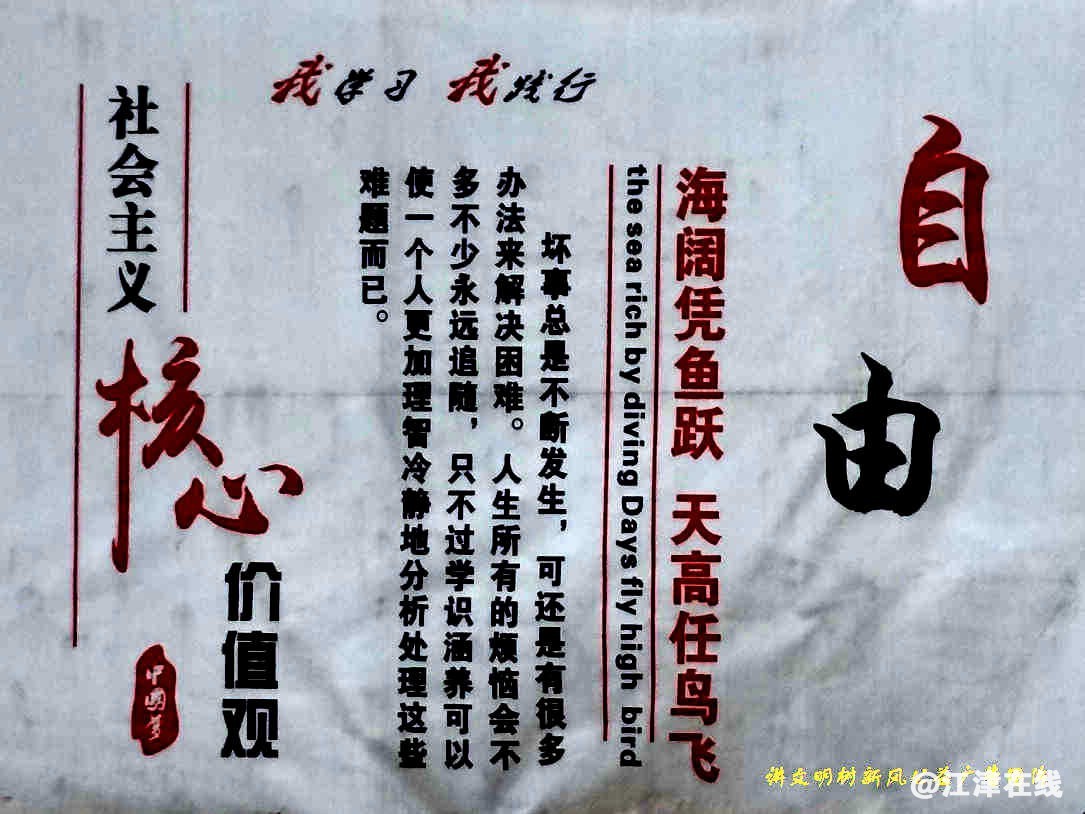 我学习 我践行
自由
海阔凭鱼跃 天高任鸟飞
the sea rich by diving Days fly high bird
坏事总是不断发生，可还是有很多
办法来解决困难。人生所有的烦恼会不
多不少永远追随，只不过学识涵养可以
使一个人更加理智冷静地分析处理这些
难题而已。
社会主义
核心
价值观
中國夢
讲文明树新风
@江津在线